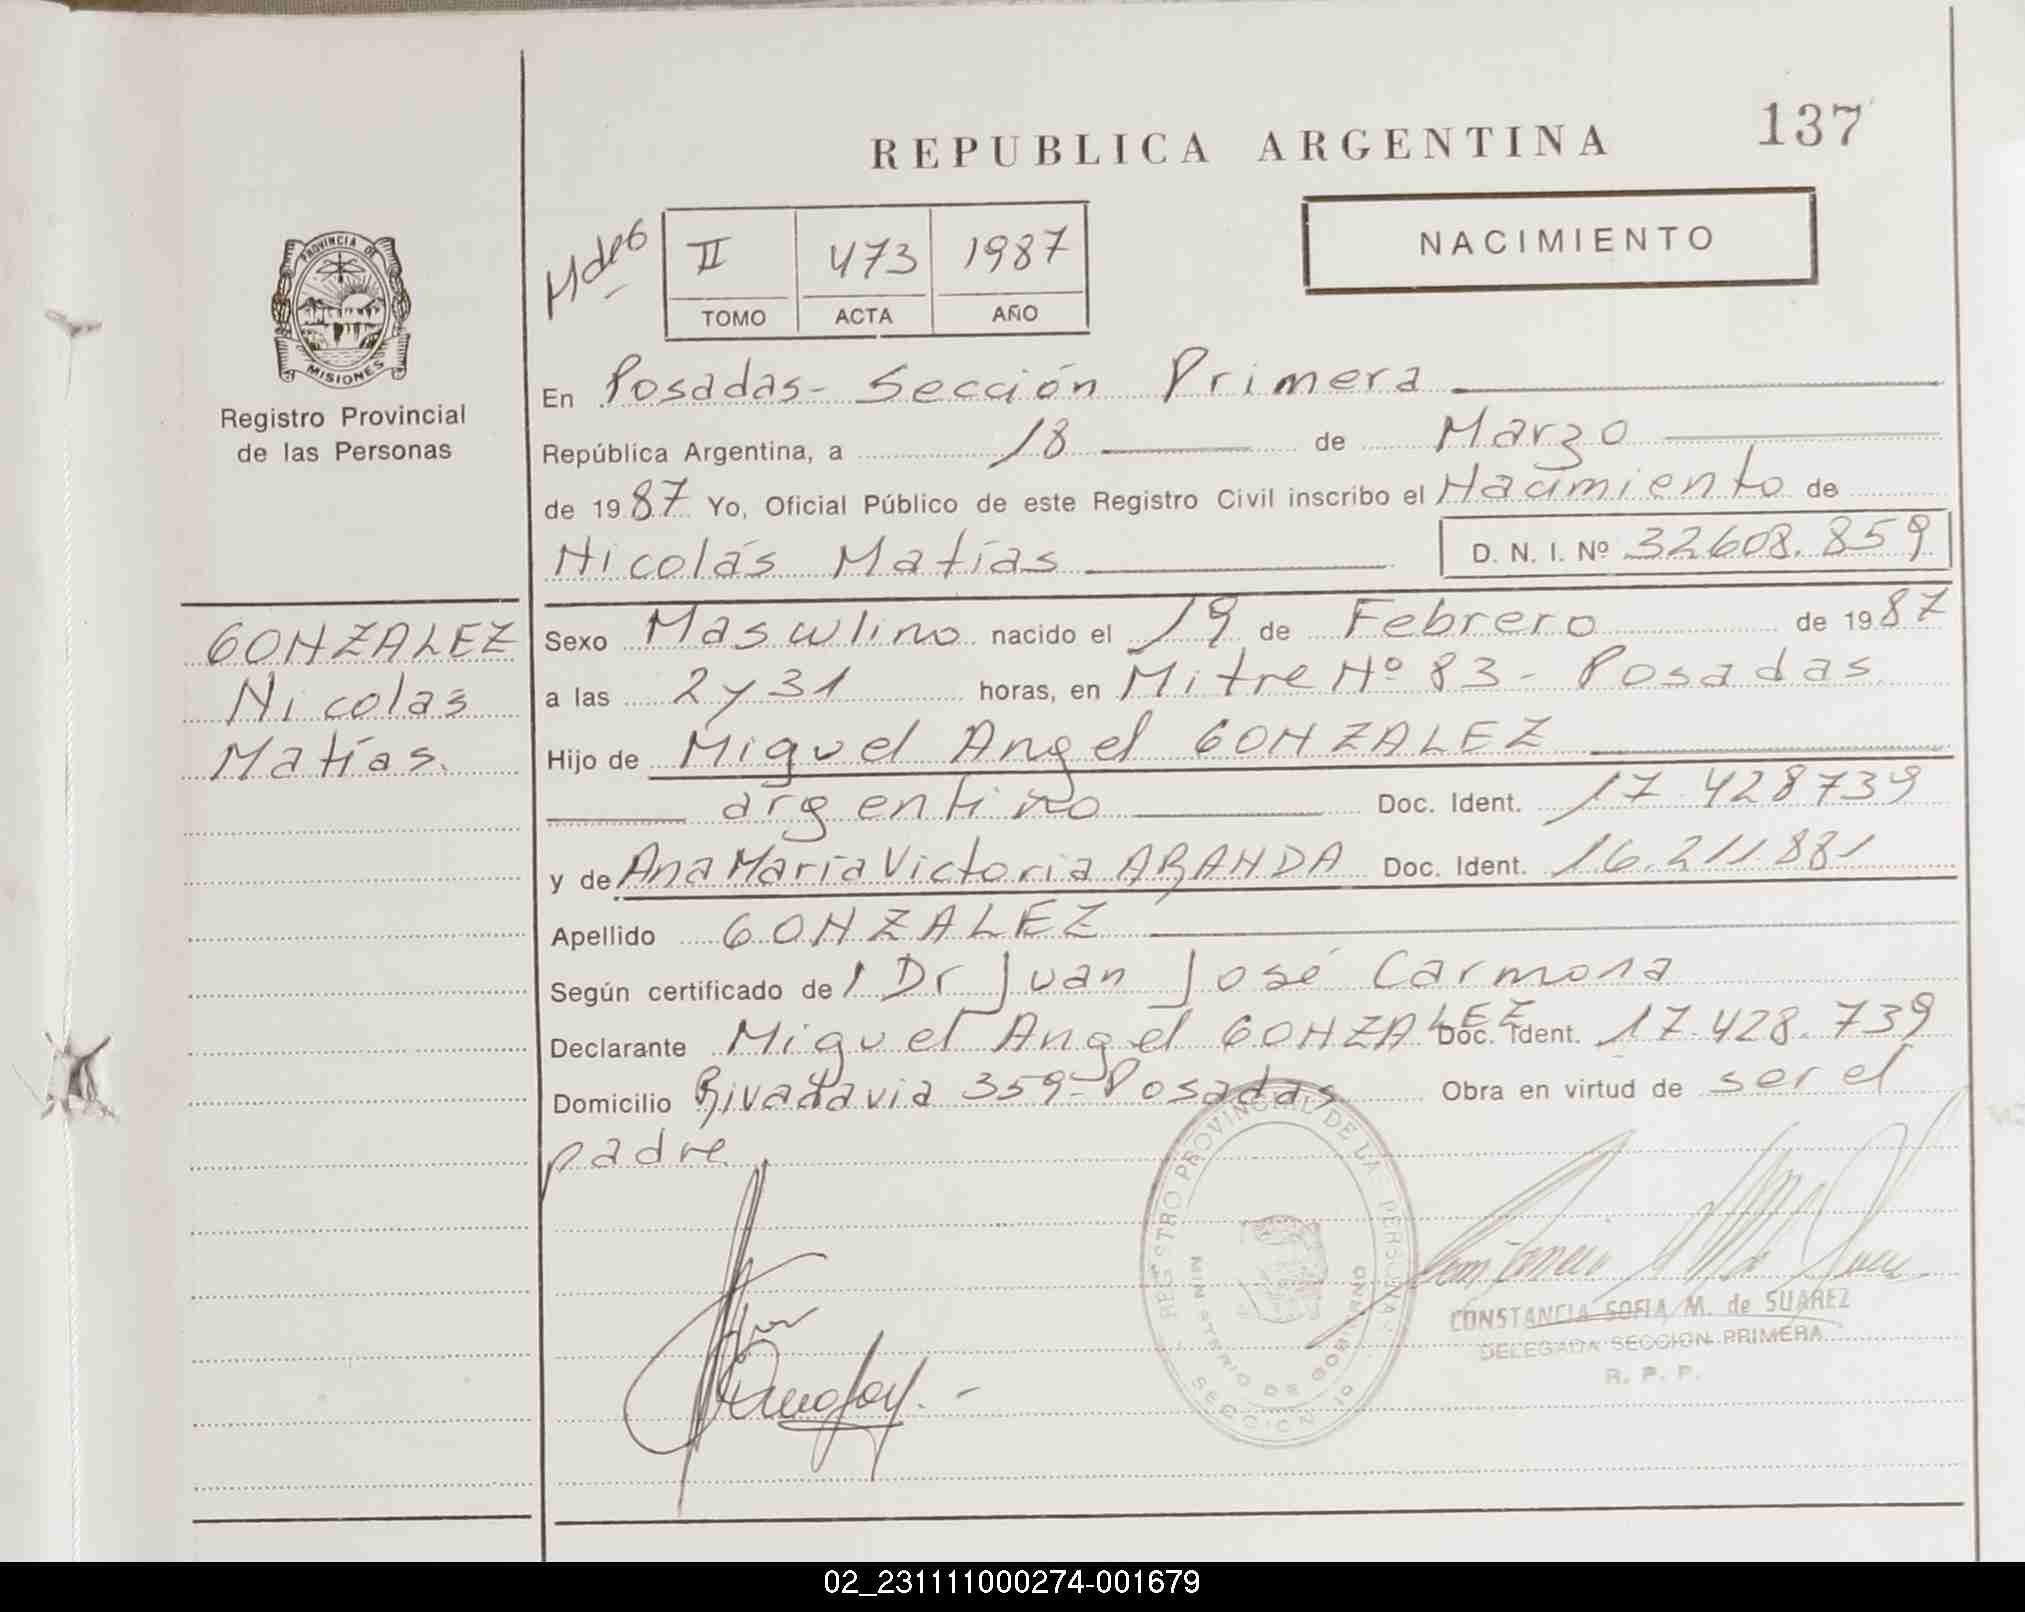 REPUBLICA ARGENTINA
137
NACIMIENTO
II 473 1987
TOMO ACTA AÑO
PROVINCIA DE
MISIONES
Registro Provincial
de las Personas
GONZALEZ
Nicolas
Matías.
En Posadas - Sección Primera
República Argentina, a 18 de Marzo
de 1987 Yo, Oficial Público de este Registro Civil inscribo el Nacimiento de
Nicolás Matías D. N. I. Nº 32608.859
Sexo Masculino nacido el 19 de Febrero de 1987
a las 2 y 31 horas, en Mitre Nº 83 - Posadas
Hijo de Miguel Angel GONZALEZ
argentino Doc. Ident. 17.428739
y de Ana María Victoria ARANDA Doc. Ident. 16.211.881
Apellido GONZALEZ
Según certificado del Dr Juan José Carmona
Declarante Miguel Angel GONZALEZ Doc. Ident. 17.428.739
Domicilio Rivadavia 359 - Posadas Obra en virtud de ser el
padre
REGISTRO PROVINCIAL DE LAS PERSONAS
MINISTERIO DE GOBIERNO
SECCION 1º
CONSTANCIA SOFIA M. de SUAREZ
DELEGADA SECCION PRIMERA
R. P. P.
02_231111000274-001679